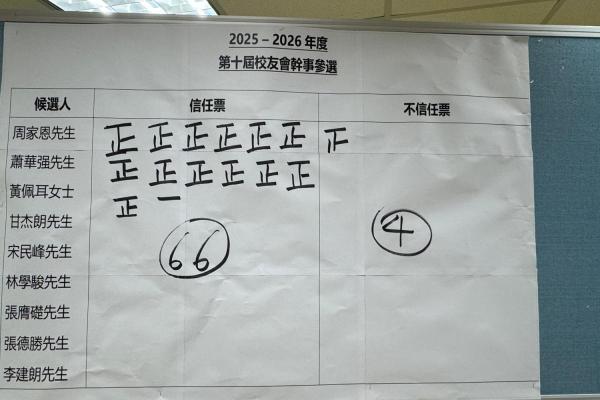 2025 – 2026 年度
第十屆校友會幹事參選
候選人 信任票 不信任票
周家恩先生 正 正 正 正 正 正 正
蕭華强先生 正 正 正 正 正 正
黃佩耳女士 正 一
甘杰朗先生
宋民峰先生 66 4
林學駿先生
張膺礎先生
張德勝先生
李建朗先生